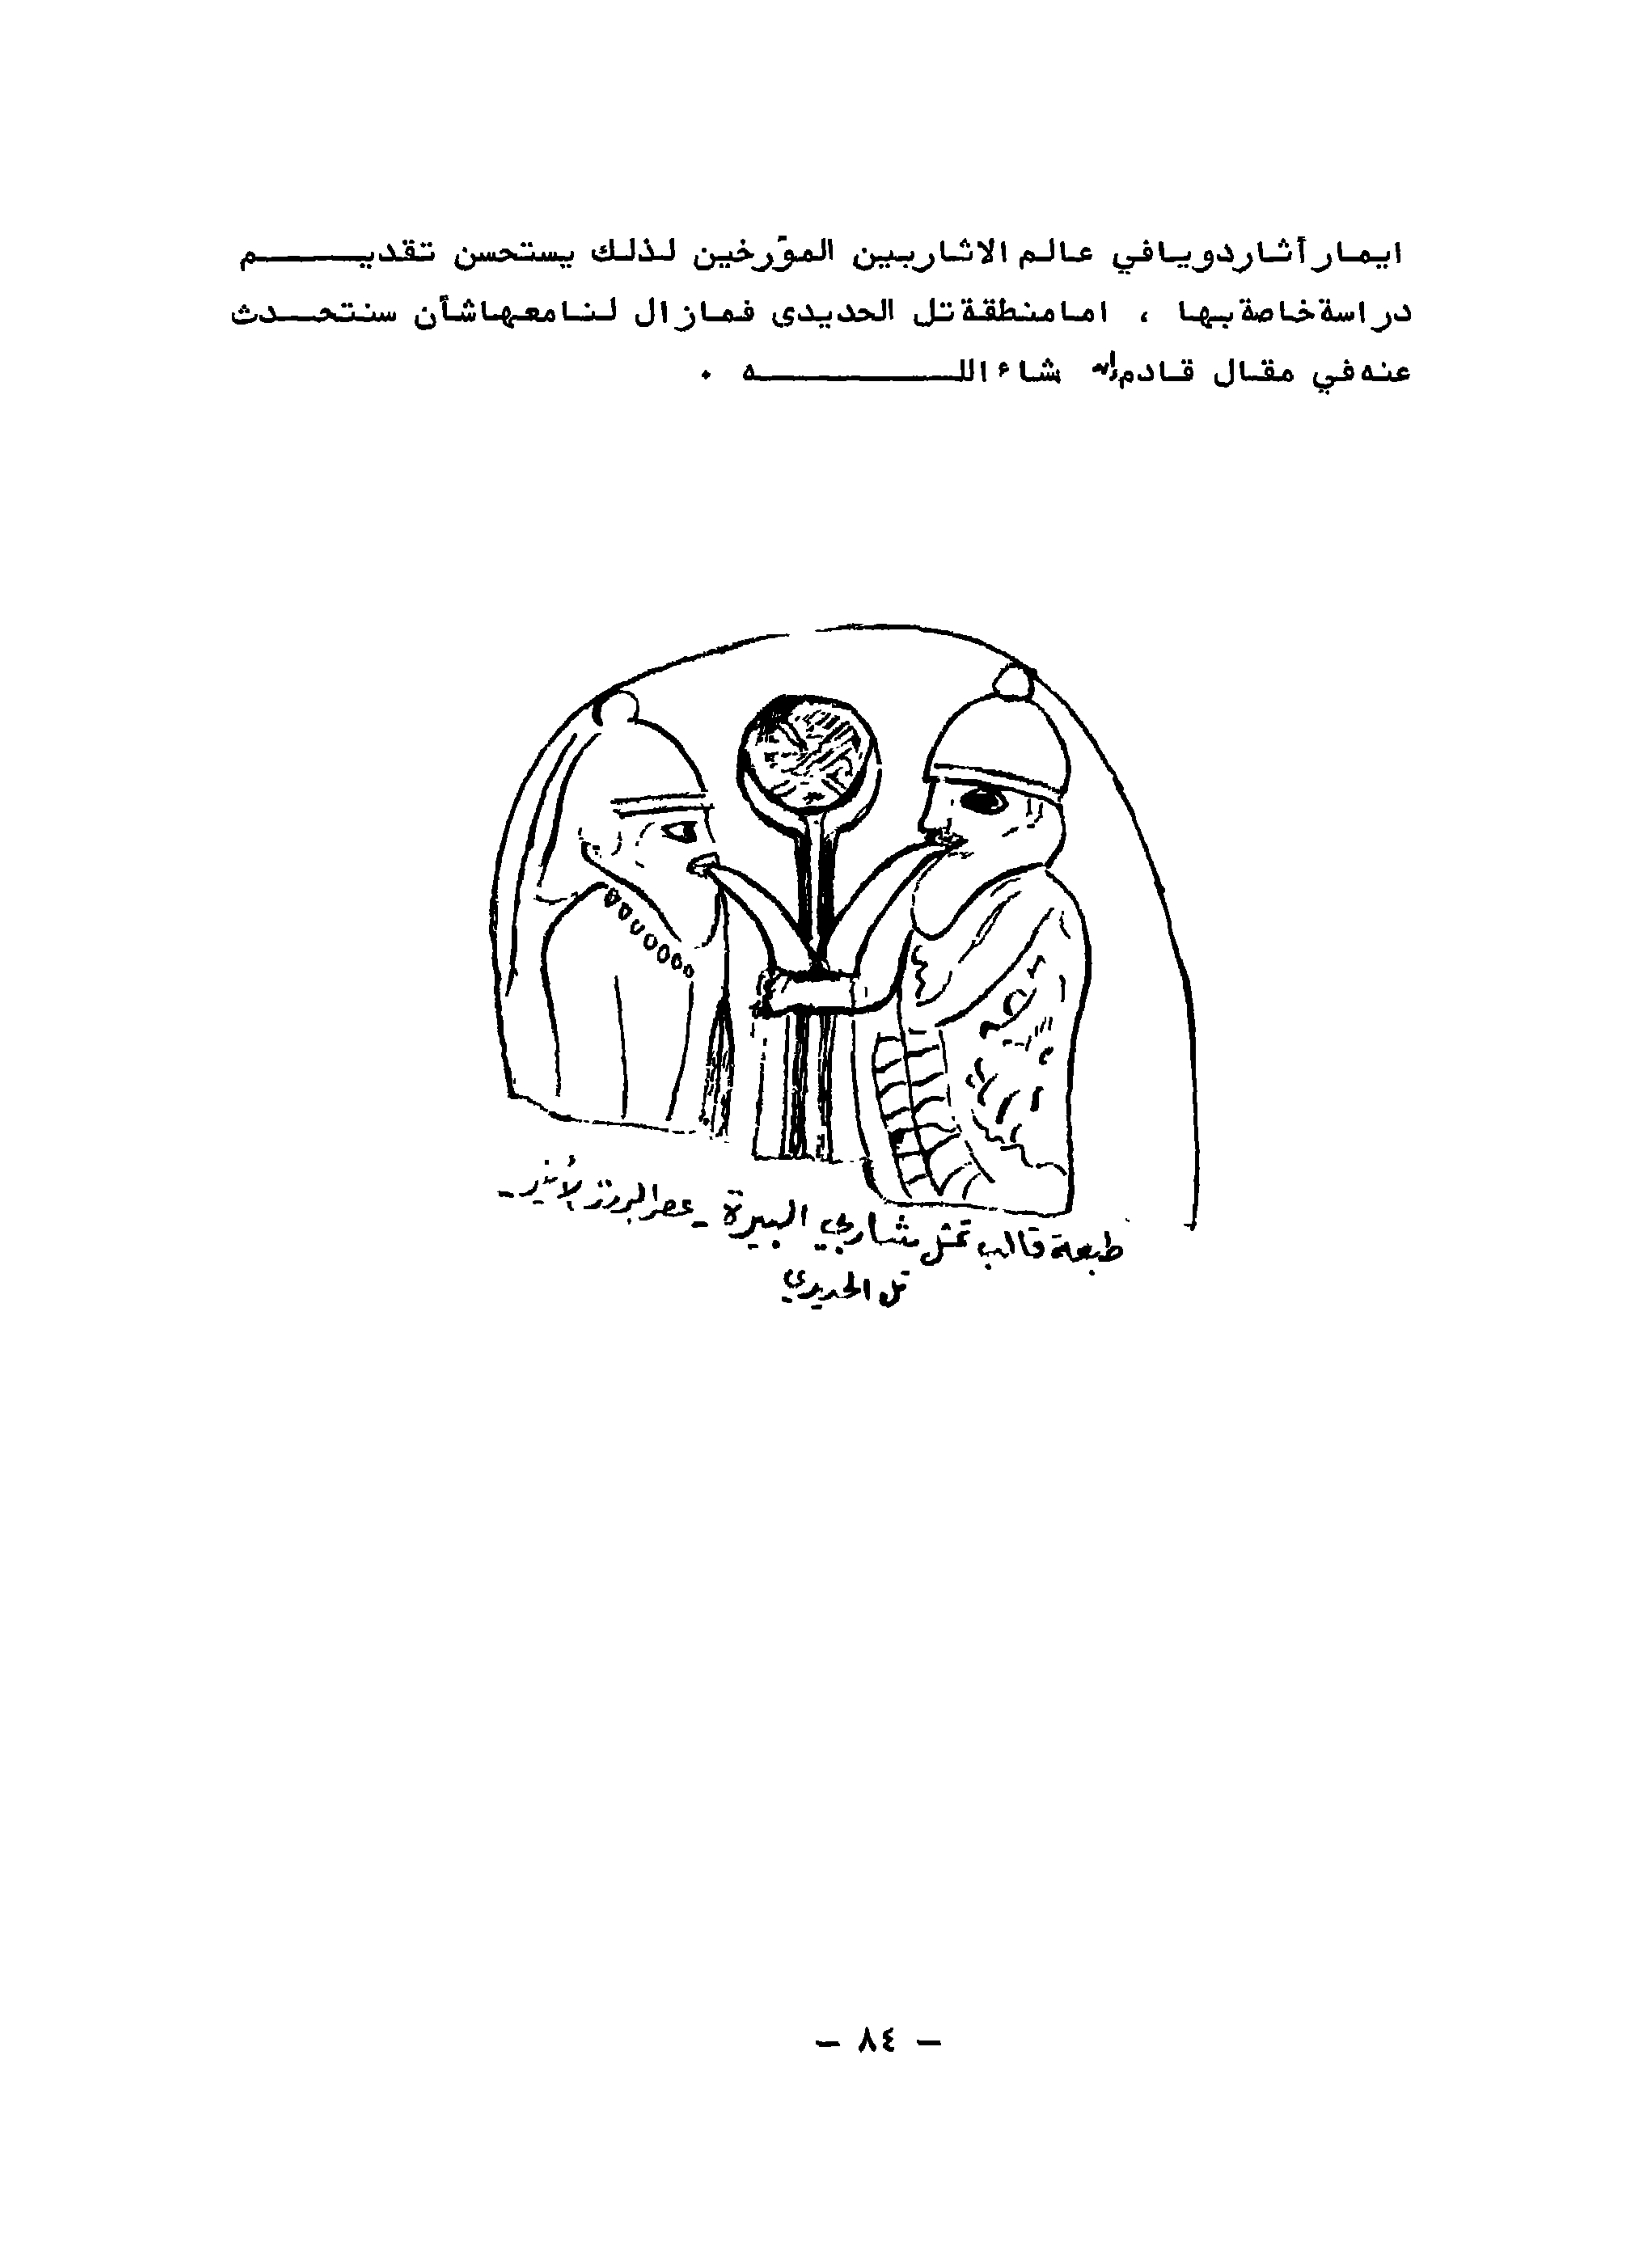 ايمار أثار دويا في عالم الاثار بين الموّرخين لذلك يستحسن تقديم
دراسة خاصة بها ، اما منطقة تل الحديدى فماز ال لنا معها شأن سنتحدث
عنه في مقال قادم إن شاء الله .
طبعة قالب تمثل شاربي البيرة - عصر البرونز الأخير -
تل الحديدي
- ٨٤ -